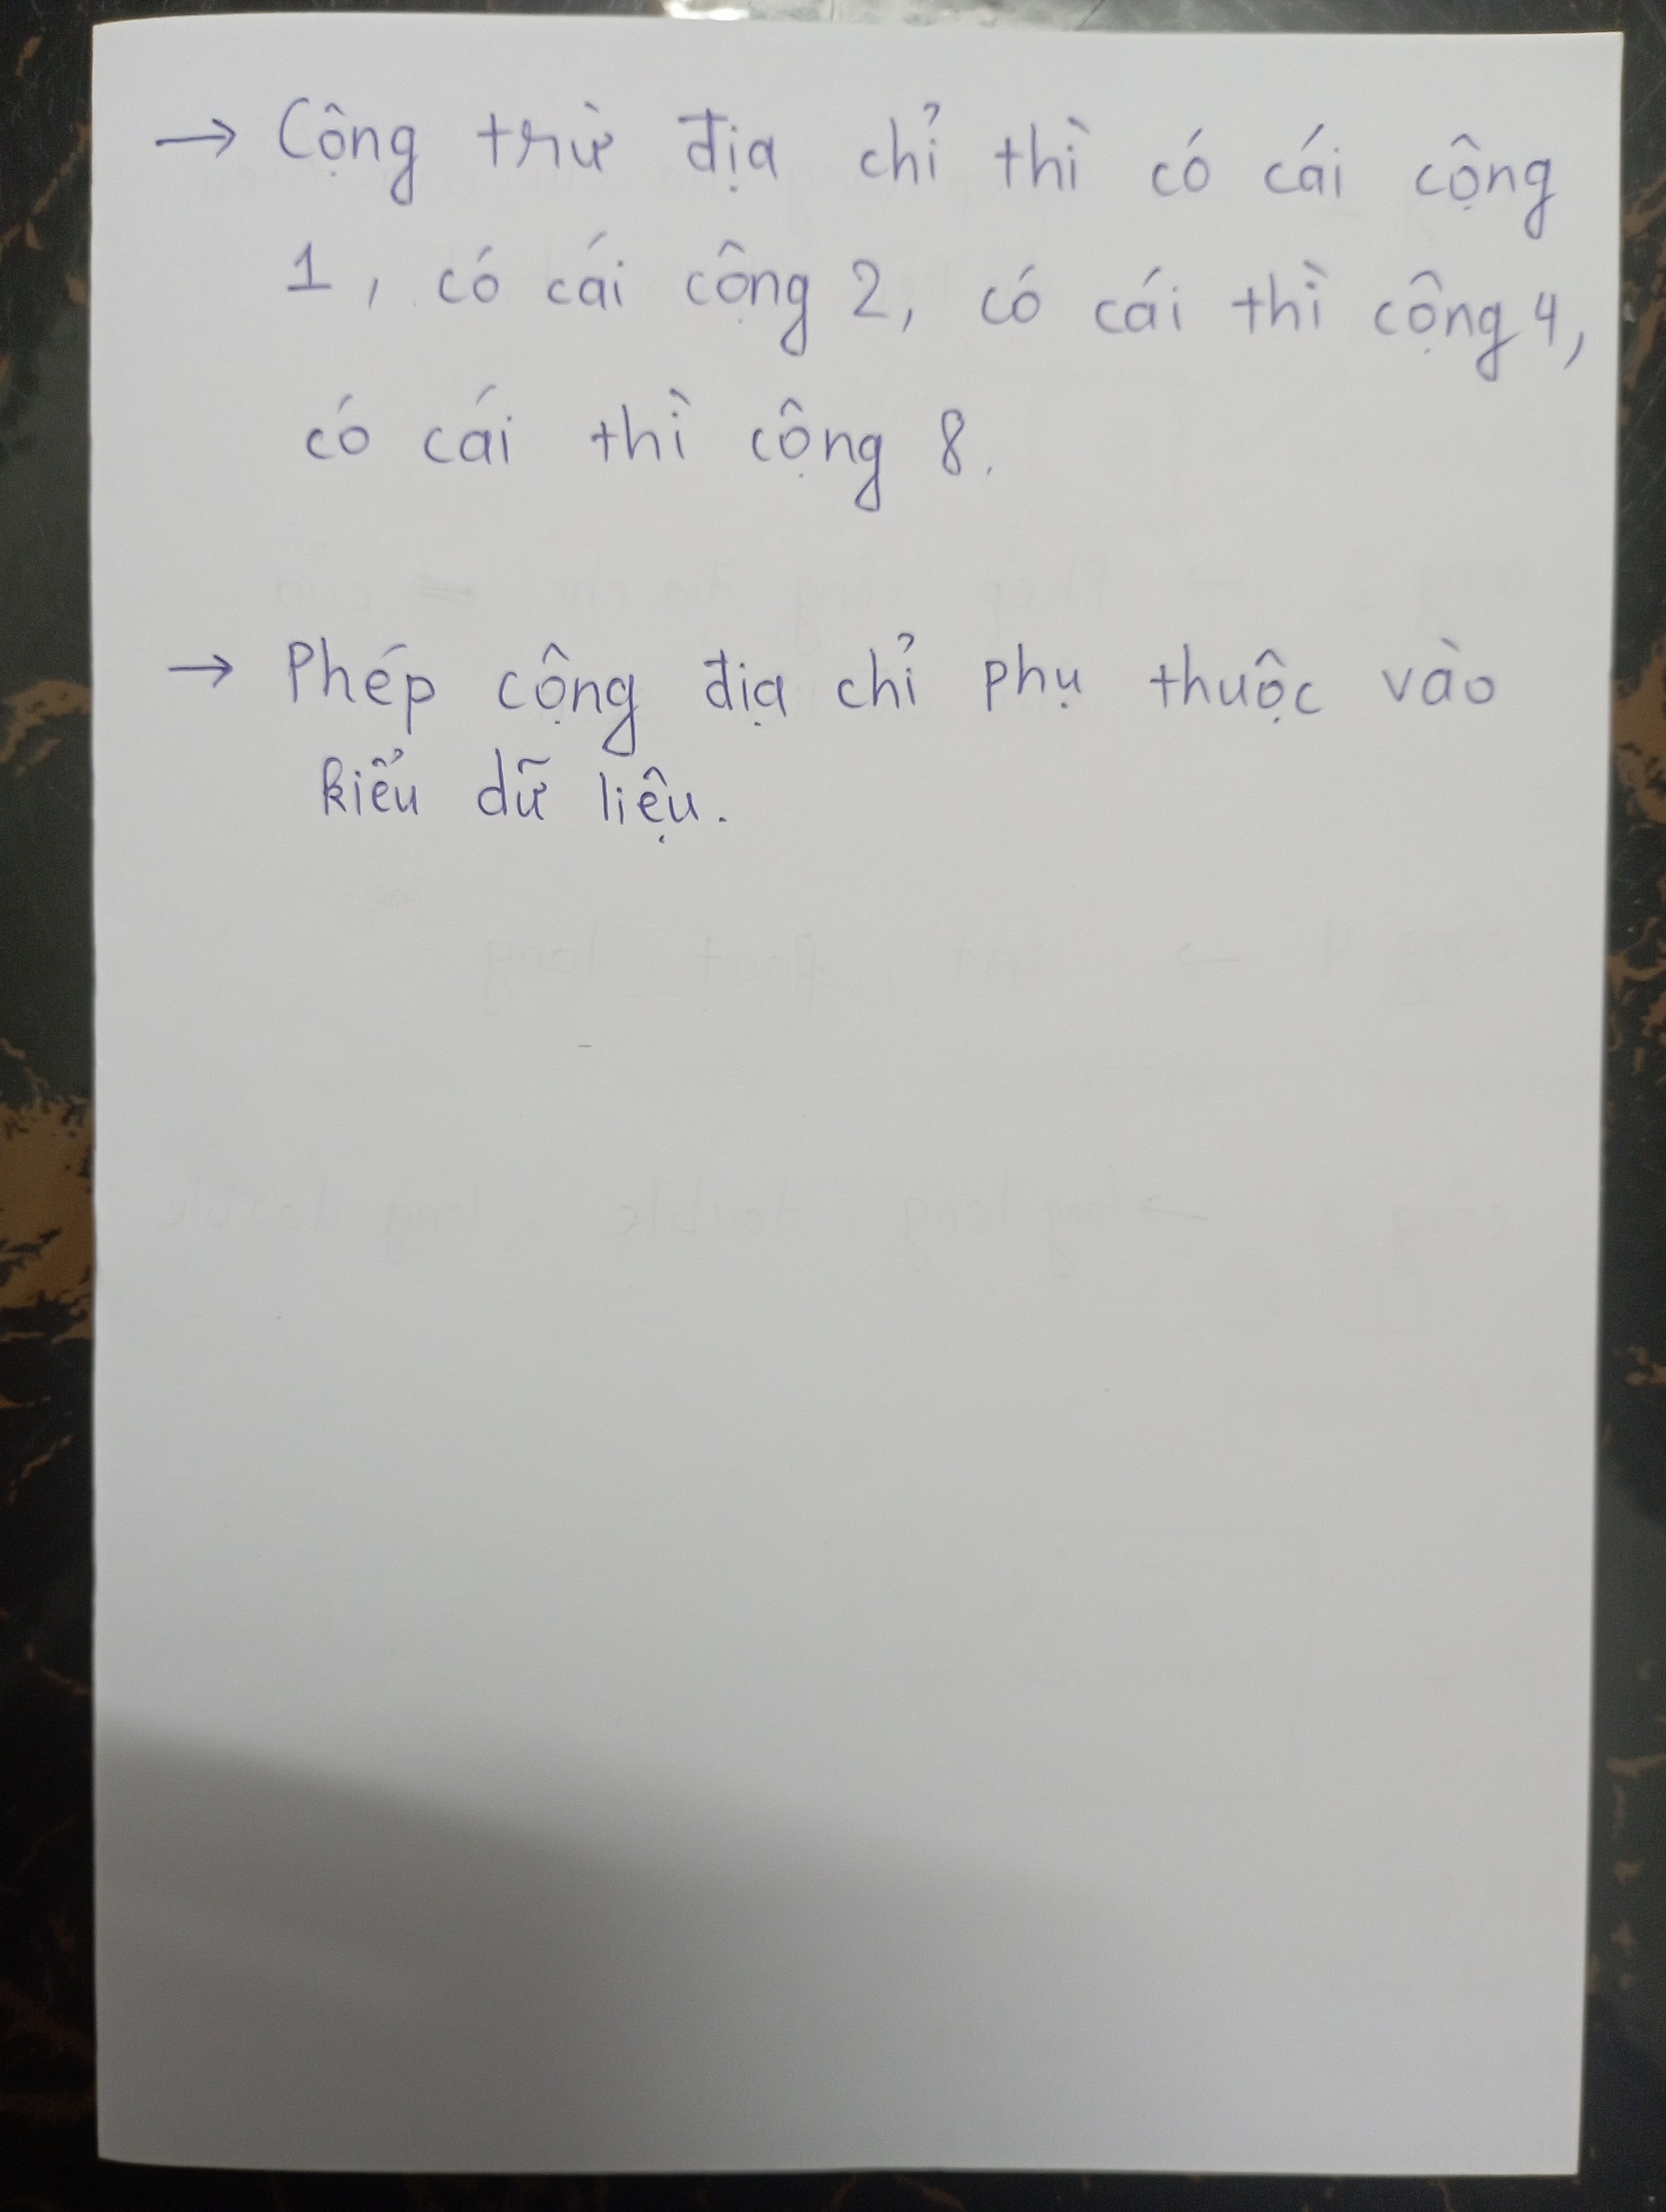 → Cộng trừ địa chỉ thì có cái cộng
1, có cái cộng 2, có cái thì cộng 4,
có cái thì cộng 8.
→ Phép cộng địa chỉ phụ thuộc vào
kiểu dữ liệu.